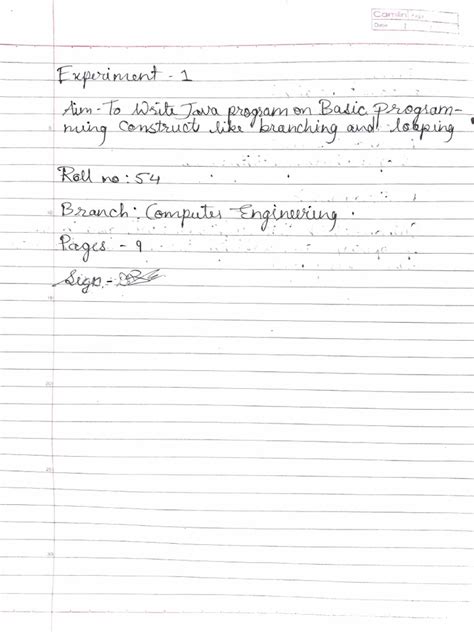 Camlin Page
Date / /
Experiment - 1
Aim - To Write Java program on Basic Program-
ming Construct like branching and looping
Roll no : 54
Branch : Computer Engineering .
Pages - 9
Sign -